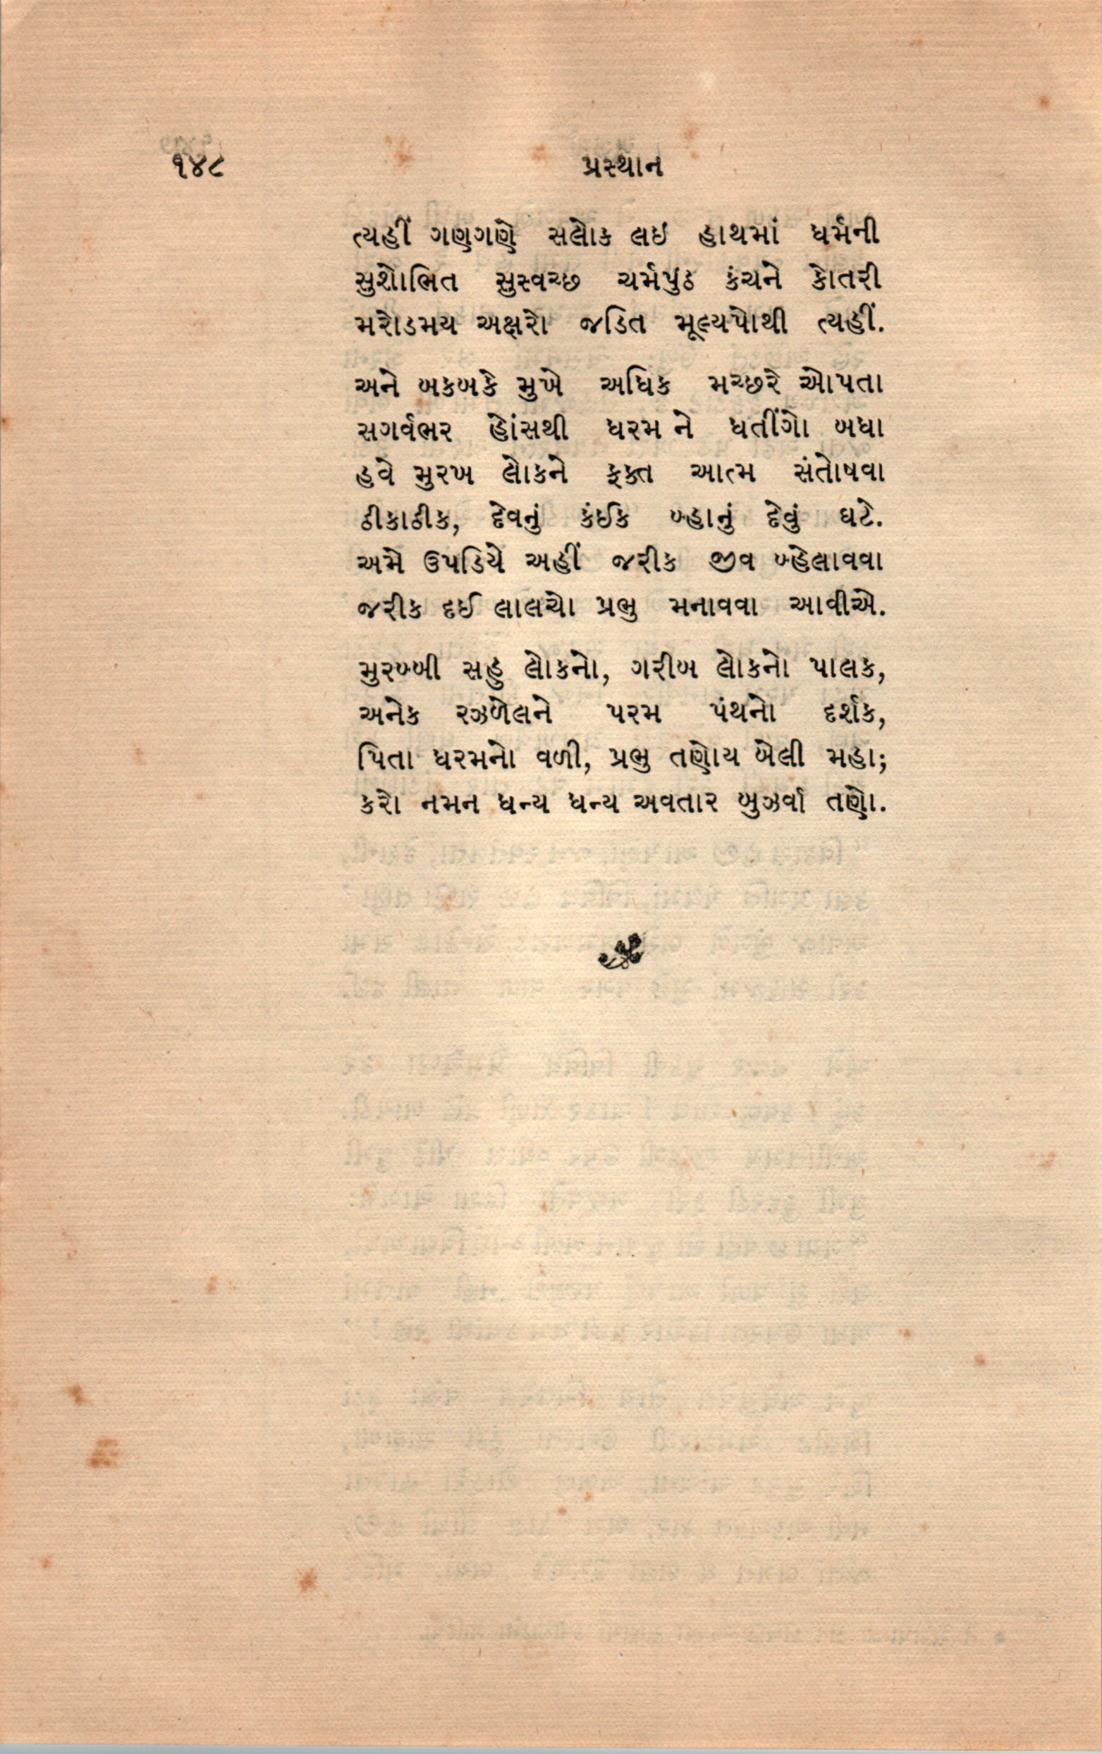 ૧૪૮
પ્રસ્થાન
ત્યહીં ગણગણે સલોક લઇ હાથમાં ધર્મની
સુશોભિત સુસ્વચ્છ ચર્મપુઠ કંચને કોતરી
મરોડમય અક્ષરો જડિત મૂલ્યપોથી ત્યહીં.
અને બકબકે મુખે અધિક મચ્છરે ઓપતા
સગર્વભર હોંસથી ધરમ ને ધતીંગો બધા
હવે મુરખ લોકને ફક્ત આત્મ સંતોષવા
ઠીકાઠીક, દેવનું કંઈક બ્હાનું દેવું ઘટે.
અમે ઉપડિયે અહીં જરીક જીવ બ્હેલાવવા
જરીક દઈ લાલચો પ્રભુ મનાવવા આવીએ.
મુરબ્બી સહુ લોકનો, ગરીબ લોકનો પાલક,
અનેક રઝળેલને પરમ પંથનો દર્શક,
પિતા ધરમનો વળી, પ્રભુ તણોય બેલી મહા;
કરો નમન ધન્ય ધન્ય અવતાર બુઝર્વા તણો.